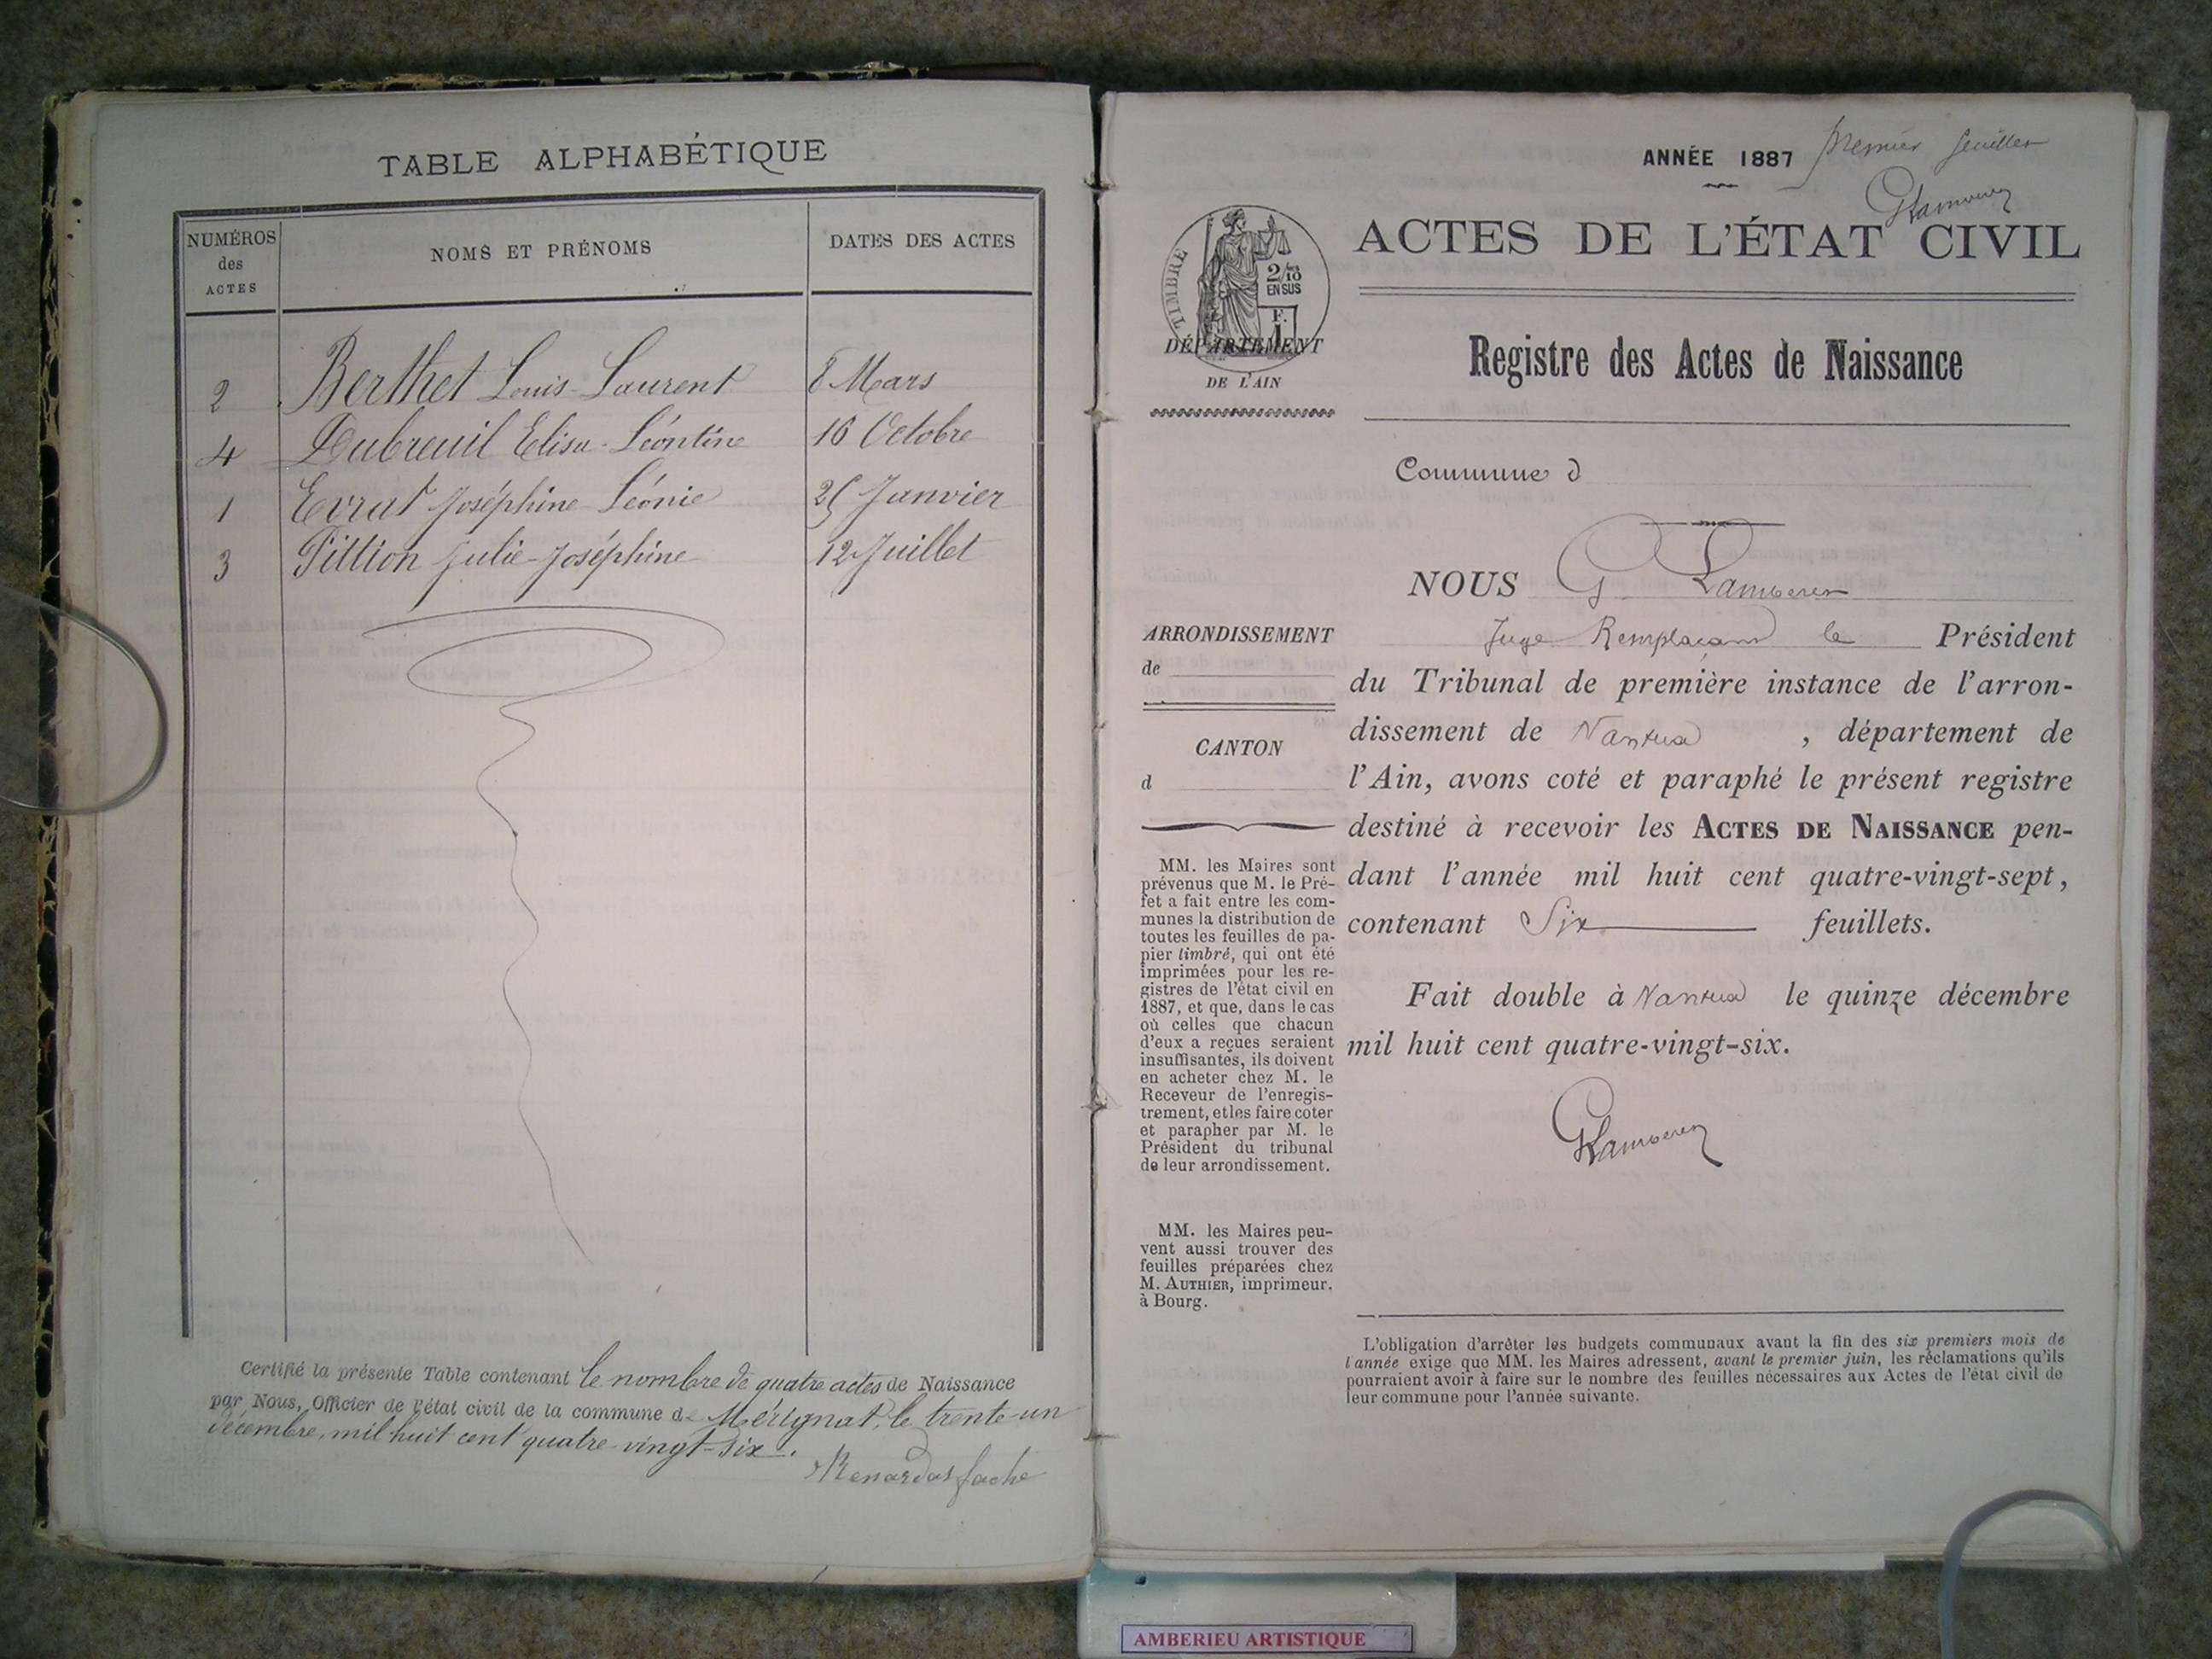 TABLE ALPHABÉTIQUE
NUMÉROS
des
ACTES
NOMS ET PRÉNOMS
DATES DES ACTES
2 Berthet Louis-Laurent 8 Mars
4 Dubreuil Elisa-Léontine 16 Octobre
1 Evrat Joséphine-Léonie 25 Janvier
3 Pittion Julie-Joséphine 12 Juillet
Certifié la présente Table contenant le nombre de quatre actes de Naissance
par Nous, Officier de l'état civil de la commune de Mérignat, le trente-un
décembre, mil huit cent quatre-vingt-six.
ANNÉE 1887 premier feuillet
ACTES DE L'ÉTAT CIVIL
TIMBRE
2/10
EN SUS
F.
DÉPARTEMENT
DE L'AIN
Registre des Actes de Naissance
Commune d
NOUS G.
Juge Remplaçant le Président
du Tribunal de première instance de l'arron-
dissement de Nantua, département de
l'Ain, avons coté et paraphé le présent registre
destiné à recevoir les ACTES DE NAISSANCE pen-
dant l'année mil huit cent quatre-vingt-sept,
contenant Six feuillets.
Fait double à Nantua le quinze décembre
mil huit cent quatre-vingt-six.
ARRONDISSEMENT
de
CANTON
d
MM. les Maires sont
prévenus que M. le Pré-
fet a fait entre les com-
munes la distribution de
toutes les feuilles de pa-
pier timbré, qui ont été
imprimées pour les re-
gistres de l'état civil en
1887, et que, dans le cas
où celles que chacun
d'eux a reçues seraient
insuffisantes, ils doivent
en acheter chez M. le
Receveur de l'enregis-
trement, et les faire coter
et parapher par M. le
Président du tribunal
de leur arrondissement.
MM. les Maires peu-
vent aussi trouver des
feuilles préparées chez
M. AUTHIER, imprimeur.
à Bourg.
L'obligation d'arrêter les budgets communaux avant la fin des six premiers mois de
l'année exige que MM. les Maires adressent, avant le premier juin, les réclamations qu'ils
pourraient avoir à faire sur le nombre des feuilles nécessaires aux Actes de l'état civil de
leur commune pour l'année suivante.
AMBERIEU ARTISTIQUE